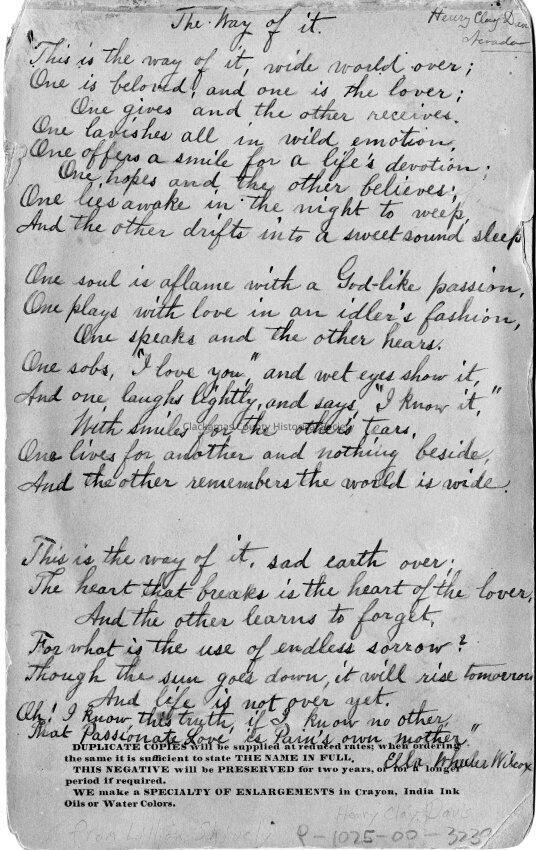 The Way of it.
Henry Clay
Nevada
"This is the way of it, wide world over;
One is beloved, and one is the lover;
One gives and the other receives.
One lavishes all in wild emotion,
One offers a smile for a life's devotion;
One hopes and the other believes;
One lies awake in the night to weep,
And the other drifts into a sweet sound sleep
One soul is aflame with a God-like passion,
One plays with love in an idler's fashion,
One speaks and the other hears.
One sobs, "I love you," and wet eyes show it,
And one laughs lightly, and says "I know it,"
With smiles for the other's tears.
Clackamas County Historical Society
One lives for another and nothing beside,
And the other remembers the world is wide.
This is the way of it, sad earth over;
The heart that breaks is the heart of the lover,
And the other learns to forget.
For what is the use of endless sorrow?
Though the sun goes down, it will rise tomorrow
And life is not over yet.
Oh! I know this truth, if I know no other,
That Passionate Love is Pain's own mother."
Ella Wheeler Wilcox
DUPLICATE COPIES will be supplied at reduced rates; when ordering
the same it is sufficient to state THE NAME IN FULL.
THIS NEGATIVE will be PRESERVED for two years, or for a longer
period if required.
WE make a SPECIALTY OF ENLARGEMENTS in Crayon, India Ink
Oils or Water Colors.
Henry Clay Davis
from Lillian
P-1025-00-323